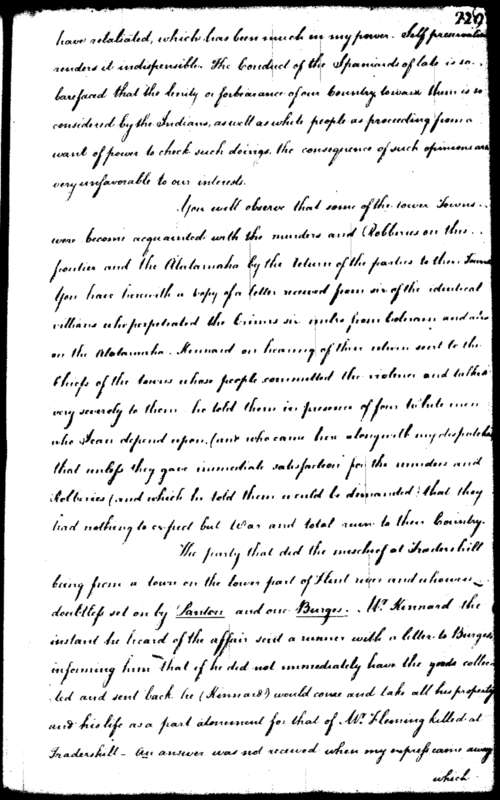 229
have retaliated, which has been much in my power. Self preservation
renders it indispensible. The Conduct of the Spaniards of late is so
barefaced that the lenity or forbearance of our Country towards them is so
considered by the Indians, as well as white people as proceeding from a
want of power to check such doings, the consequence of such opinions are
very unfavorable to our interests.
You will observe that some of the lower Towns
were become acquainted with the murders and Robberies on this
frontier and the Alatamaha by the return of the parties to their Towns
You have herewith a Copy of a letter received from six of the identical
villians who perpetrated the Crimes six miles from Colerain and also
on the Alatamaha. Kennard on hearing of their return sent to the
Chiefs of the towns whose people committed the violence and talked
very severely to them he told them in presence of four white men
who I can depend upon, (and who came here along with my dispatches)
that unless they gave immediate satisfaction for the murders and
Robberies (and which he told them would be demanded) that they
had nothing to expect but War and total ruin to their Country.
The party that did the mischief at Traders hill
being from a town on the lower part of Flint river and who were
doubtless set on by Panton and one Burges. Mr. Kennard the
instant he heard of the affair send a runner with a letter to Burges
informing him that if he did not immediately have the goods collec
ted and sent back he (Kennard) would come and take all his property
and his life as a part atonement for that of Mr. Fleming killed at
Traders hill - An answer was not received when my express came away
which